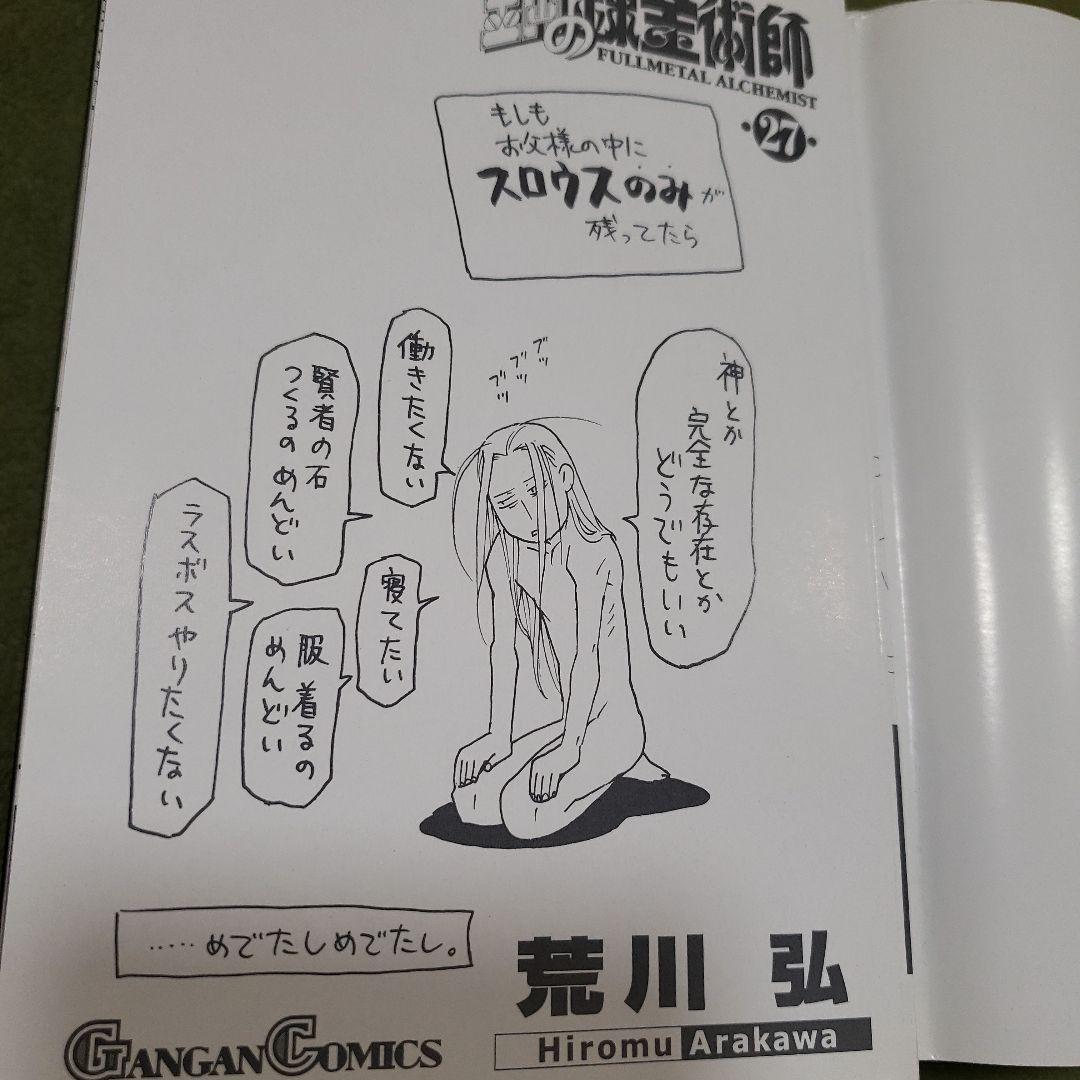 鋼の錬金術師
FULLMETAL ALCHEMIST
・27・
もしも
お父様の中に
スロウスのみが
残ってたら
ブツ
ブツ
ブツ
神とか
完全な存在とか
どうでもいい
働きたくない
賢者の石
つくるのめんどい
寝てたい
服着るの
めんどい
ラスボスやりたくない
……めでたしめでたし。
荒川 弘
Hiromu Arakawa
GANGAN COMICS